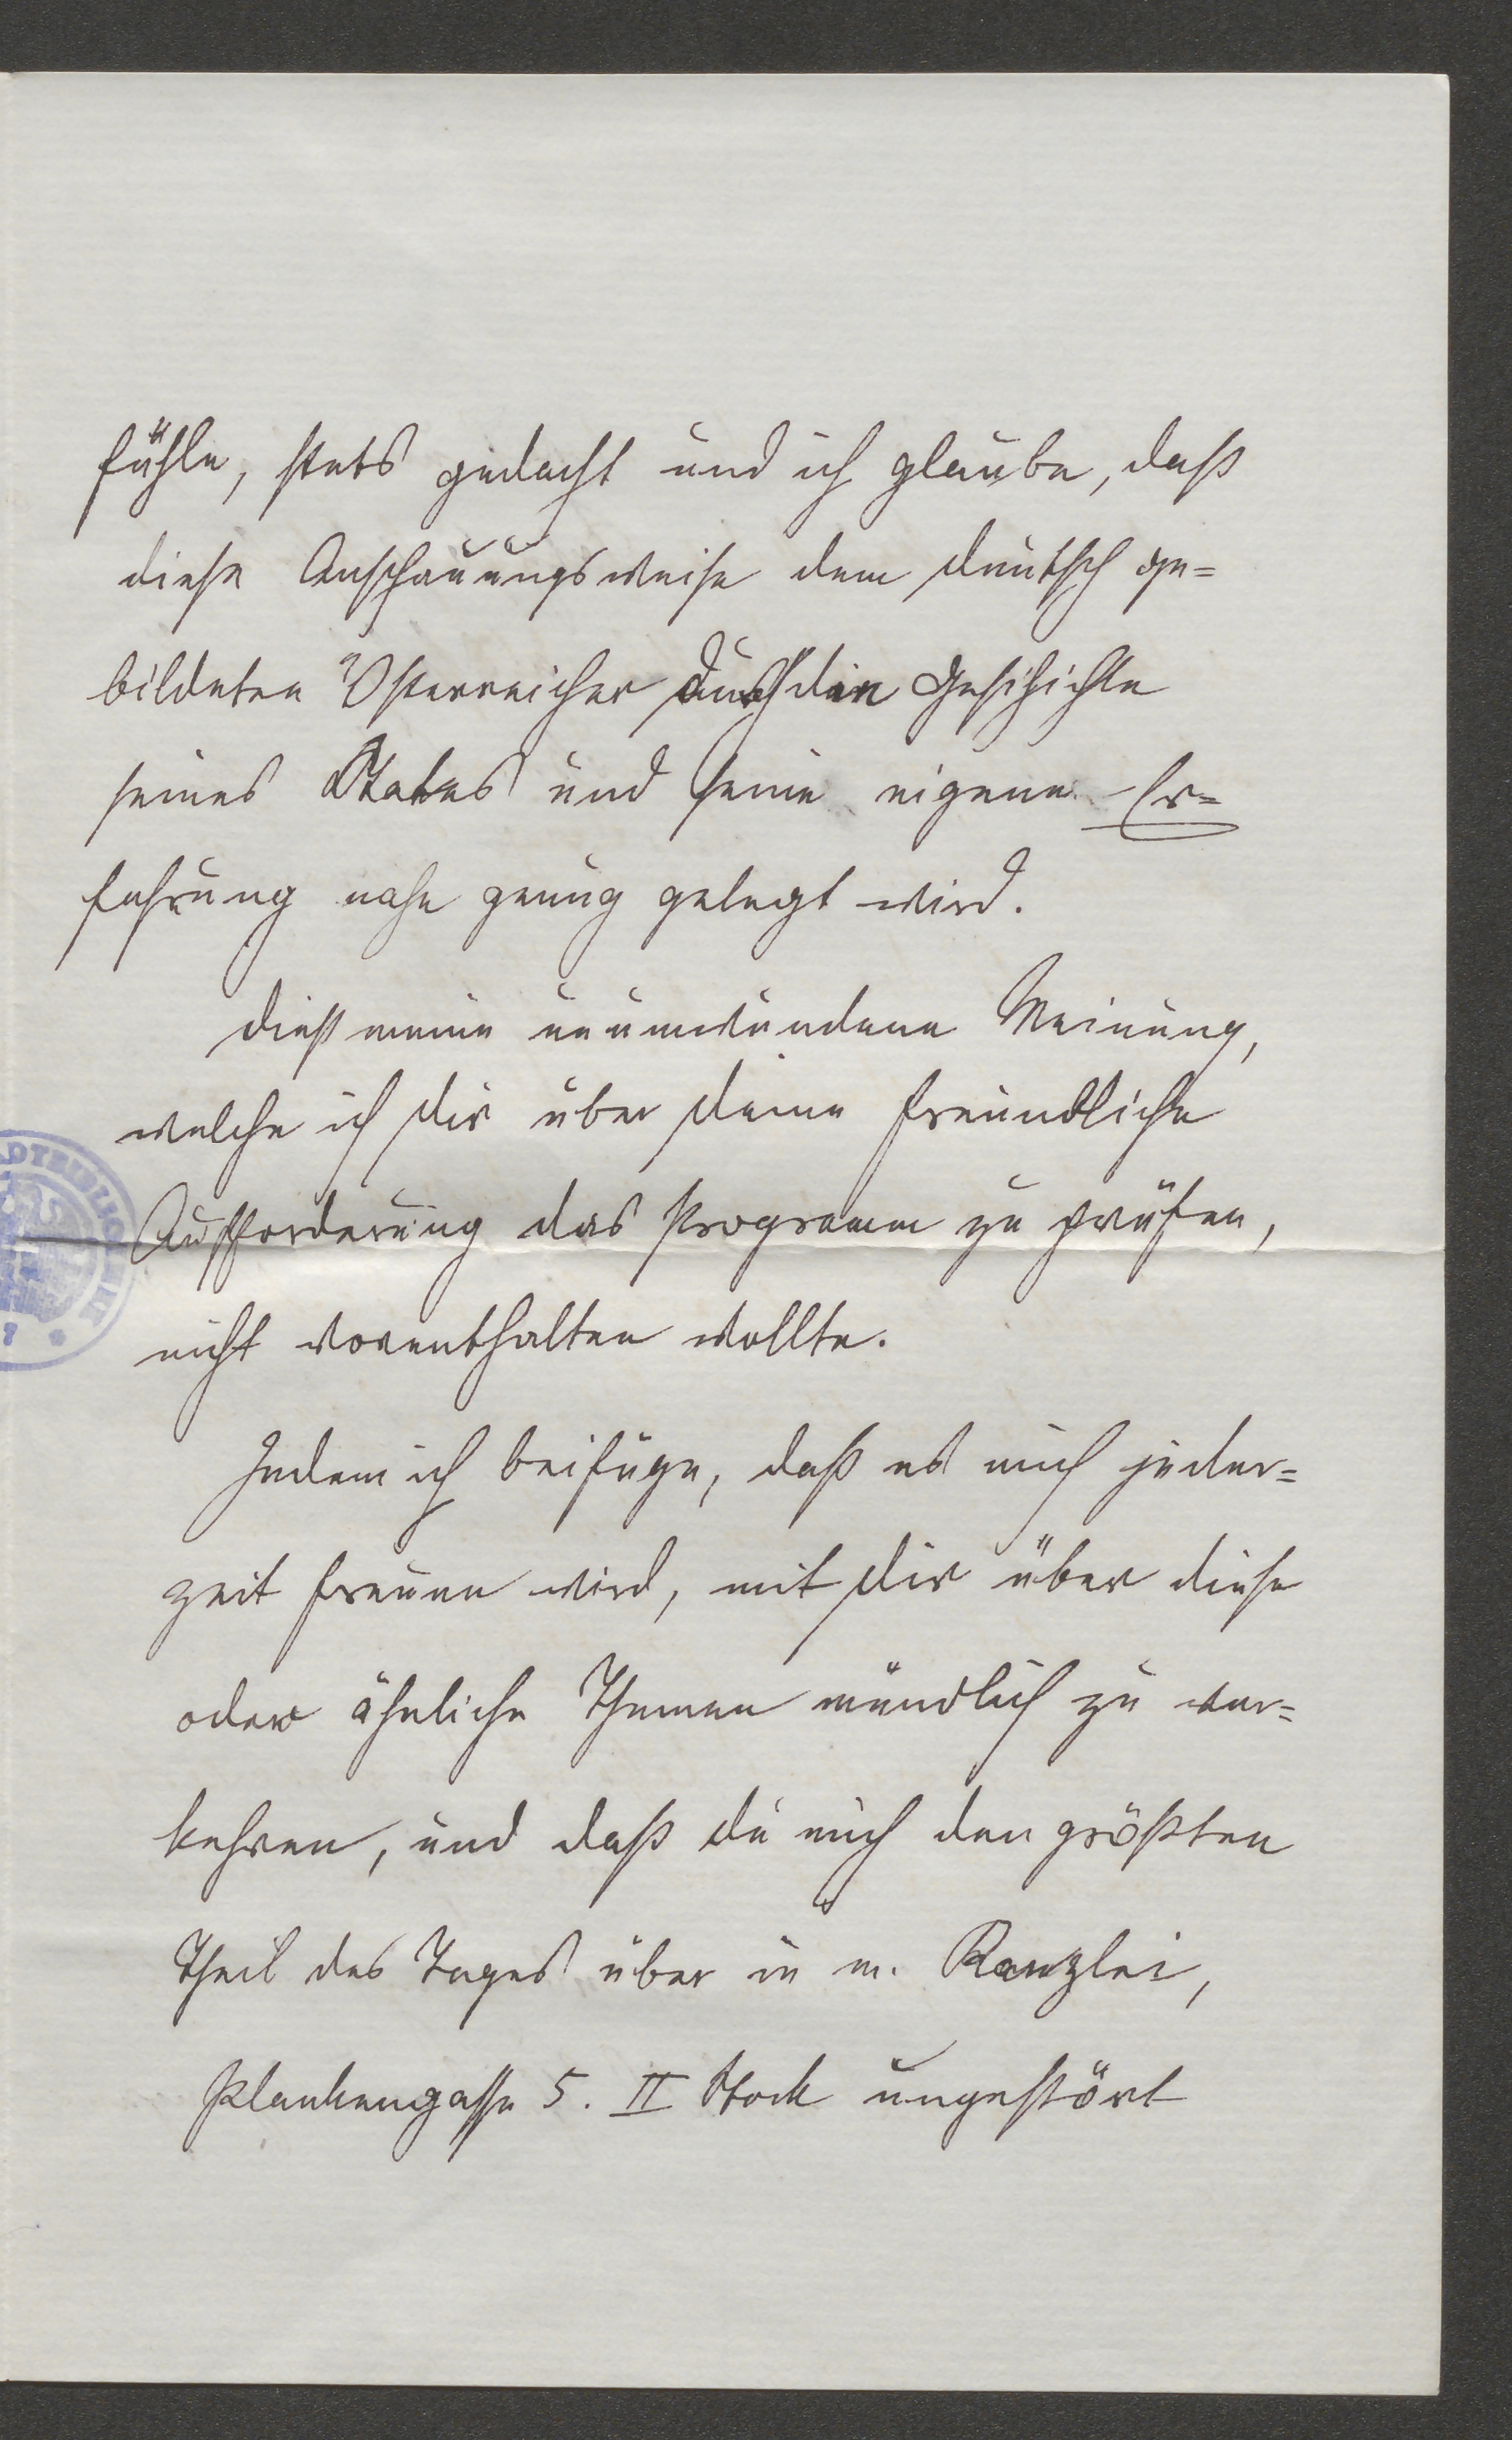 fühle, stets gedacht und ich glaube, daß
diese Anschauungsweise dem deutsch ge=
bildeten Österreicher durch die Geschichte
seines States und seine eigene Er=
fahrung nahe genug gelegt wird.
Dieß meine unumwundene Meinung,
welche ich dir über deine freundliche
Aufforderung das Programm zu prüfen,
nicht vorenthalten wollte.
Indem ich beifüge, daß es mich jeder=
zeit freuen wird, mit dir über diese
oder ähnliche Themen mündlich zu ver=
kehren, und daß du mich den größten
Theil des Tages über in m. Kanzlei,
Plankengasse 5. II Stock ungestört